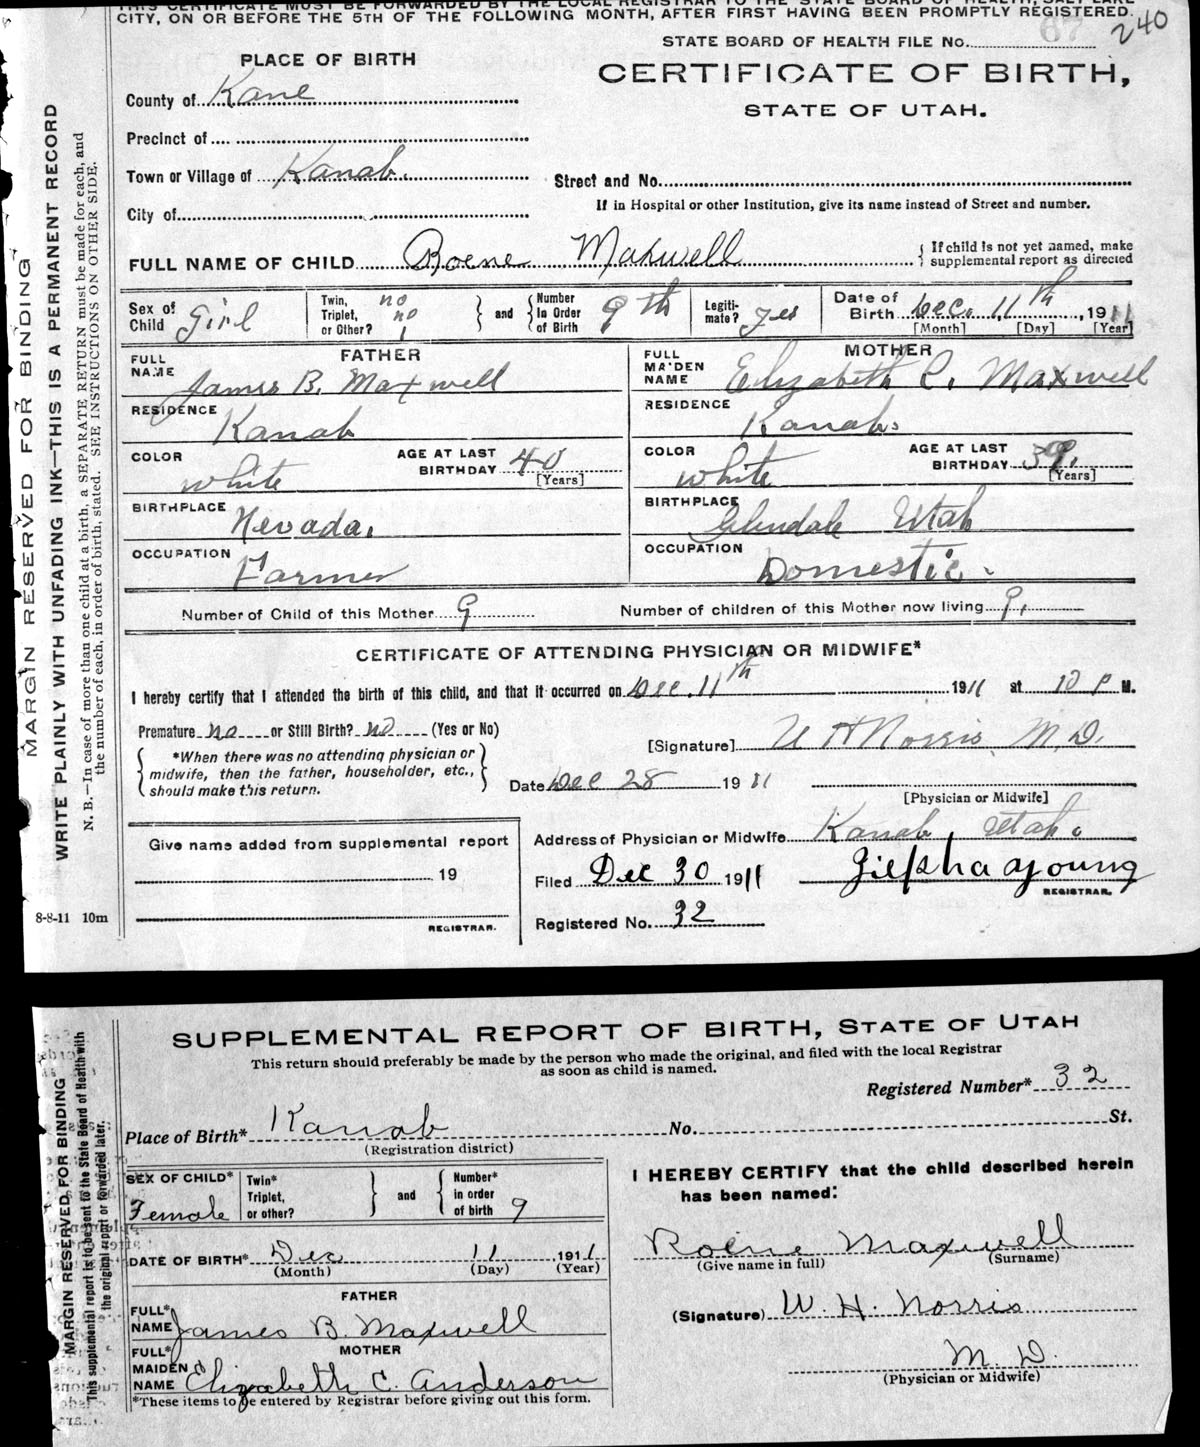 THIS CERTIFICATE MUST BE FORWARDED BY THE LOCAL REGISTRAR TO THE STATE BOARD OF HEALTH, SALT LAKE
CITY, ON OR BEFORE THE 5TH OF THE FOLLOWING MONTH, AFTER FIRST HAVING BEEN PROMPTLY REGISTERED.
240
STATE BOARD OF HEALTH FILE No. 67
PLACE OF BIRTH
CERTIFICATE OF BIRTH,
STATE OF UTAH.
County of Kane
Precinct of
Town or Village of Kanab.
Street and No.
City of
If in Hospital or other Institution, give its name instead of Street and number.
FULL NAME OF CHILD Roene Maxwell
If child is not yet named, make supplemental report as directed
Sex of Child Girl
Twin, Triplet, or Other? no no 1
and
Number In Order of Birth 9th
Legiti-mate? yes
Date of Birth Dec. 11th, 1911
[Month] [Day] [Year]
FATHER
FULL NAME James B. Maxwell
RESIDENCE Kanab
COLOR white
AGE AT LAST BIRTHDAY 40 [Years]
BIRTHPLACE Nevada.
OCCUPATION Farmer
MOTHER
FULL MAIDEN NAME Elizabeth C. Maxwell
RESIDENCE Kanab.
COLOR white
AGE AT LAST BIRTHDAY 39. [Years]
BIRTHPLACE Glendale Utah
OCCUPATION Domestic.
Number of Child of this Mother 9
Number of children of this Mother now living 9.
CERTIFICATE OF ATTENDING PHYSICIAN OR MIDWIFE*
I hereby certify that I attended the birth of this child, and that it occurred on Dec. 11th 1911 at 10 P M.
Premature no or Still Birth? no (Yes or No)
*When there was no attending physician or
midwife, then the father, householder, etc.,
should make this return.
[Signature] W H Norris M.D.
Date Dec 28 1911
[Physician or Midwife]
Give name added from supplemental report
19
REGISTRAR.
Address of Physician or Midwife Kanab, Utah.
Filed Dec 30 1911
Young
REGISTRAR.
Registered No. 32
MARGIN RESERVED FOR BINDING
WRITE PLAINLY WITH UNFADING INK—THIS IS A PERMANENT RECORD
N. B.—In case of more than one child at a birth, a SEPARATE RETURN must be made for each, and
the number of each, in order of birth, stated. SEE INSTRUCTIONS ON OTHER SIDE.
8-8-11 10m
SUPPLEMENTAL REPORT OF BIRTH, STATE OF UTAH
This return should preferably be made by the person who made the original, and filed with the local Registrar
as soon as child is named.
Registered Number* 32
Place of Birth* Kanab No. St.
(Registration district)
SEX OF CHILD* Female
Twin* Triplet, or other?
and
Number* in order of birth 9
DATE OF BIRTH* Dec 11 1911
(Month) (Day) (Year)
FATHER
FULL* NAME James B. Maxwell
MOTHER
FULL* MAIDEN NAME Elizabeth C. Anderson
*These items to be entered by Registrar before giving out this form.
I HEREBY CERTIFY that the child described herein
has been named:
Roene Maxwell
(Give name in full) (Surname)
(Signature) W. H. Norris
M. D.
(Physician or Midwife)
MARGIN RESERVED FOR BINDING
This supplemental report is to be sent to the State Board of Health with
the original report or forwarded later.